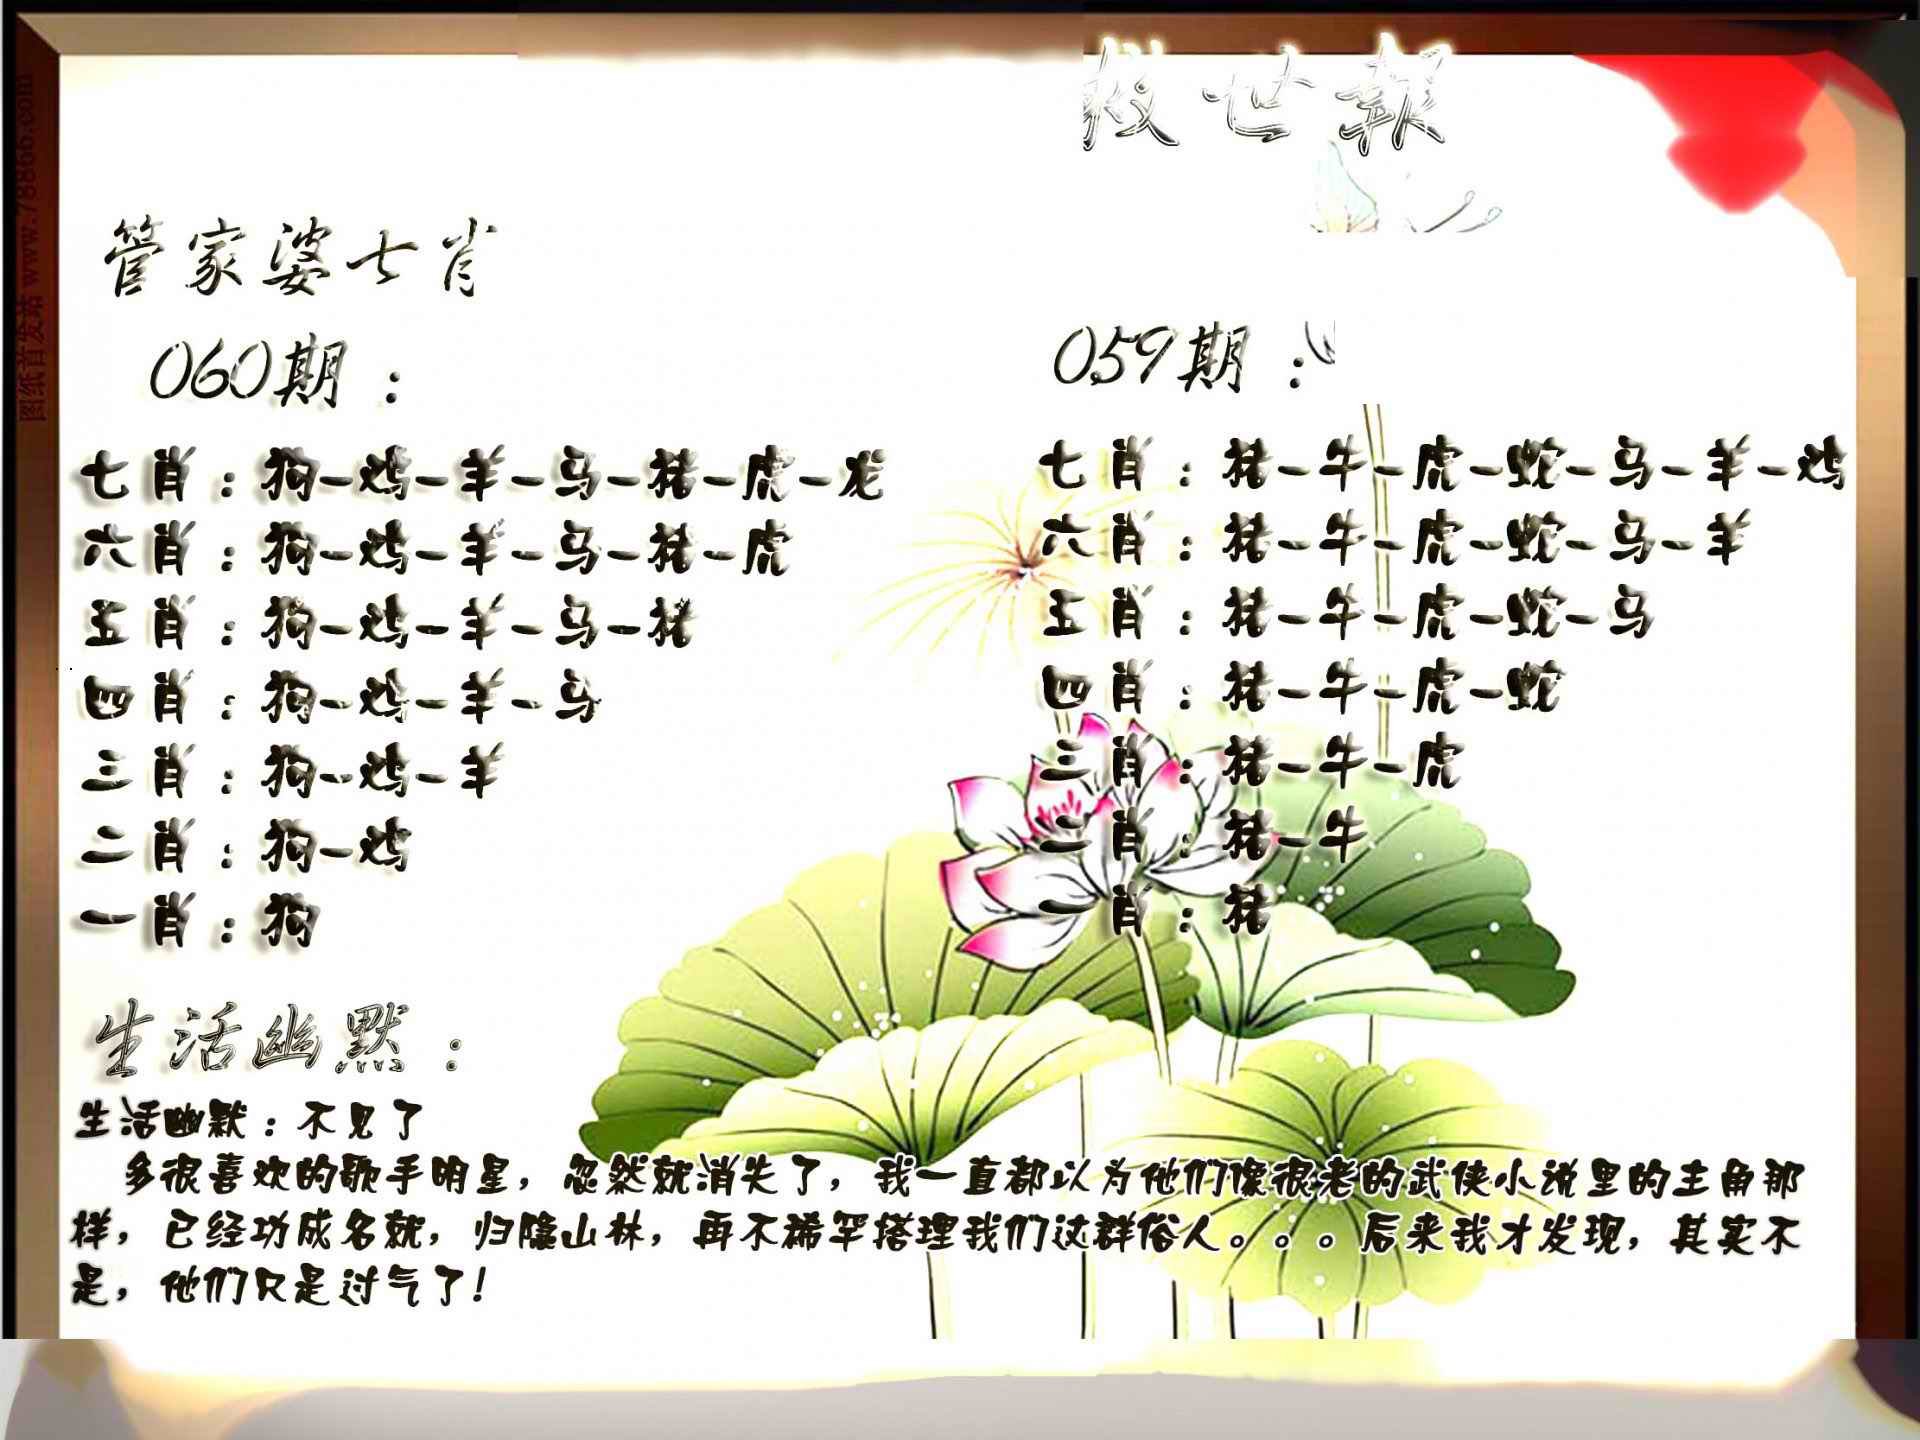 救世報
管家婆七肖
060期：
七肖：狗-鸡-羊-马-猪-虎-龙
六肖：狗-鸡-羊-马-猪-虎
五肖：狗-鸡-羊-马-猪
四肖：狗-鸡-羊-马
三肖：狗-鸡-羊
二肖：狗-鸡
一肖：狗
059期：
七肖：猪-牛-虎-蛇-马-羊-鸡
六肖：猪-牛-虎-蛇-马-羊
五肖：猪-牛-虎-蛇-马
四肖：猪-牛-虎-蛇
三肖：猪-牛-虎
二肖：猪-牛
一肖：猪
生活幽默：
生活幽默：不见了
多很喜欢的歌手明星，忽然就消失了，我一直都以为他们像很老的武侠小说里的主角那
样，已经功成名就，归隐山林，再不稀罕搭理我们这群俗人。。。后来我才发现，其实不
是，他们只是过气了！
图纸首发站 www.78866.com